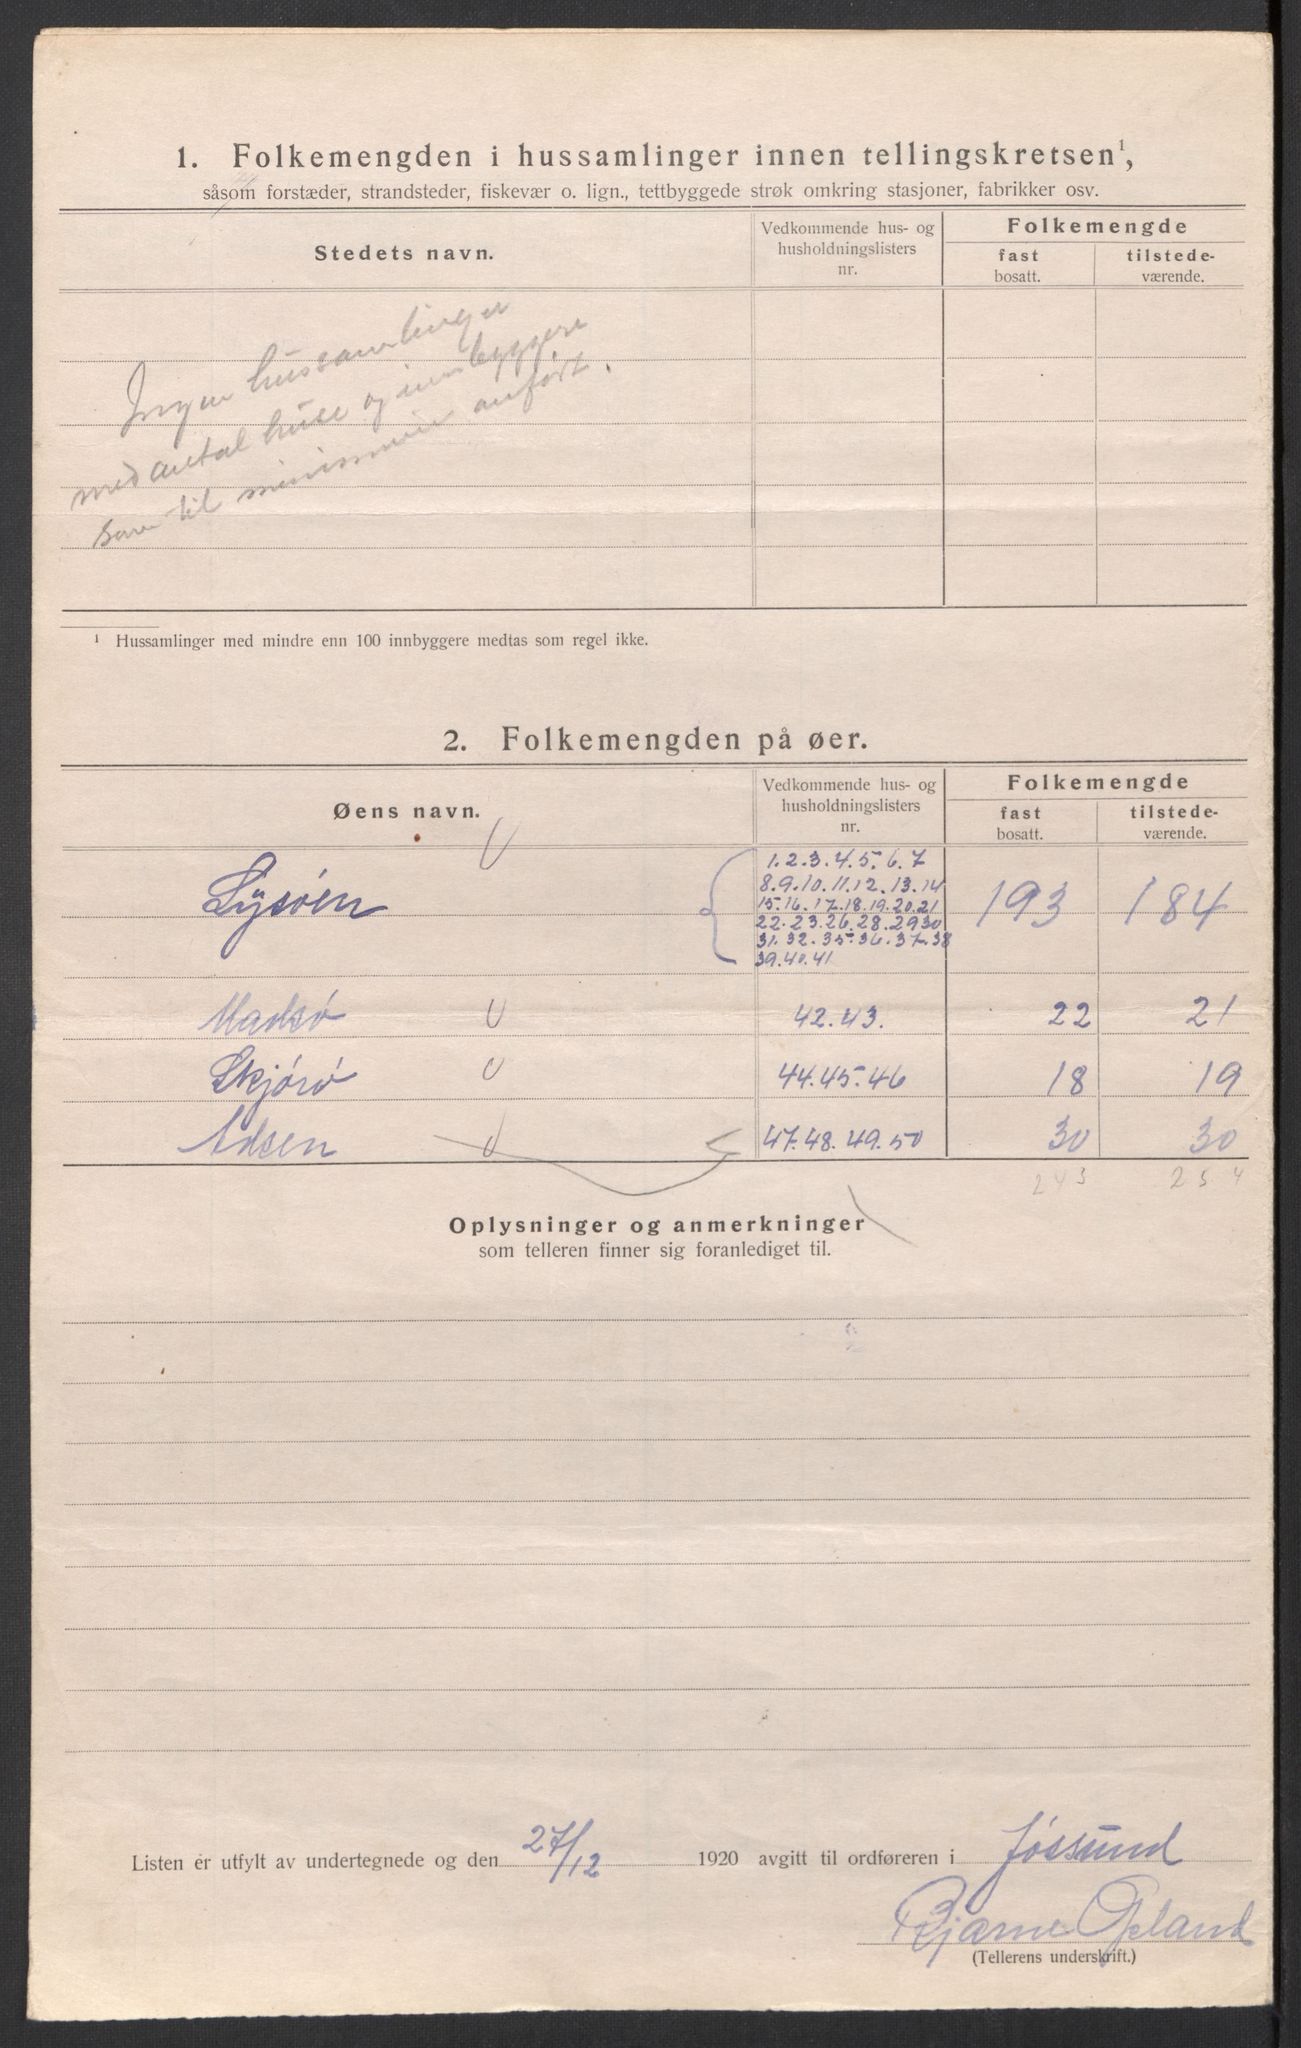 1. Folkemengden i hussamlinger innen tellingskretsen¹,
såsom forstæder, strandsteder, fiskevær o. lign., tettbyggede strøk omkring stasjoner, fabrikker osv.
Stedets navn.
Vedkommende hus- og
husholdningslisters
nr.
Folkemengde
fast
bosatt.
tilstede-
værende.
Ingen hussamlinger
med antal huse og innbyggere
som til minimum anført.
¹ Hussamlinger med mindre enn 100 innbyggere medtas som regel ikke.
2. Folkemengden på øer.
Øens navn.
Vedkommende hus- og
husholdningslisters
nr.
Folkemengde
fast
bosatt.
tilstede-
værende.
1.2.3.4.5.6.7
8.9.10.11.12.13.14
Lysøen 15.16.17.18.19.20.21 193 184
22.23.26.28.29 30
31.32.35.36.37.38
39.40.41
Madsø 42.43. 22 21
Skjørø 44.45.46 18 19
Adsen 47.48.49.50 30 30
243 254
Oplysninger og anmerkninger
som telleren finner sig foranlediget til.
Listen er utfylt av undertegnede og den 27/12 1920 avgitt til ordføreren i Jøssund
Bjarne Opland
(Tellerens underskrift.)